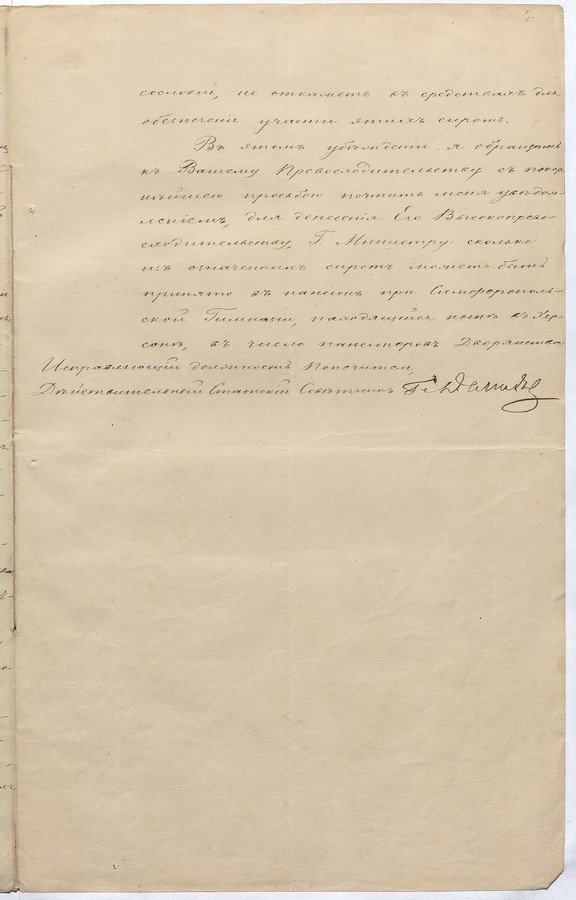 сословій, не откажетъ въ средствахъ для
обезпеченія участи этихъ сиротъ.
Въ этомъ убѣжденіи я обращаюсь
къ Вашему Превосходительству съ покор-
нѣйшею просьбою почтить меня увѣдом-
леніемъ, для донесенія Его Высокопрево-
сходительству, Г. Министру: сколько
изъ означенныхъ сиротъ можетъ быть
принято въ пансіонъ при Симферополь-
ской Гимназіи, находящійся нынѣ въ Хер-
сонѣ, въ число пансіонеровъ Дворянства
Исправляющій должность Попечителя,
Дѣйствительный Статскій Совѣтникъ